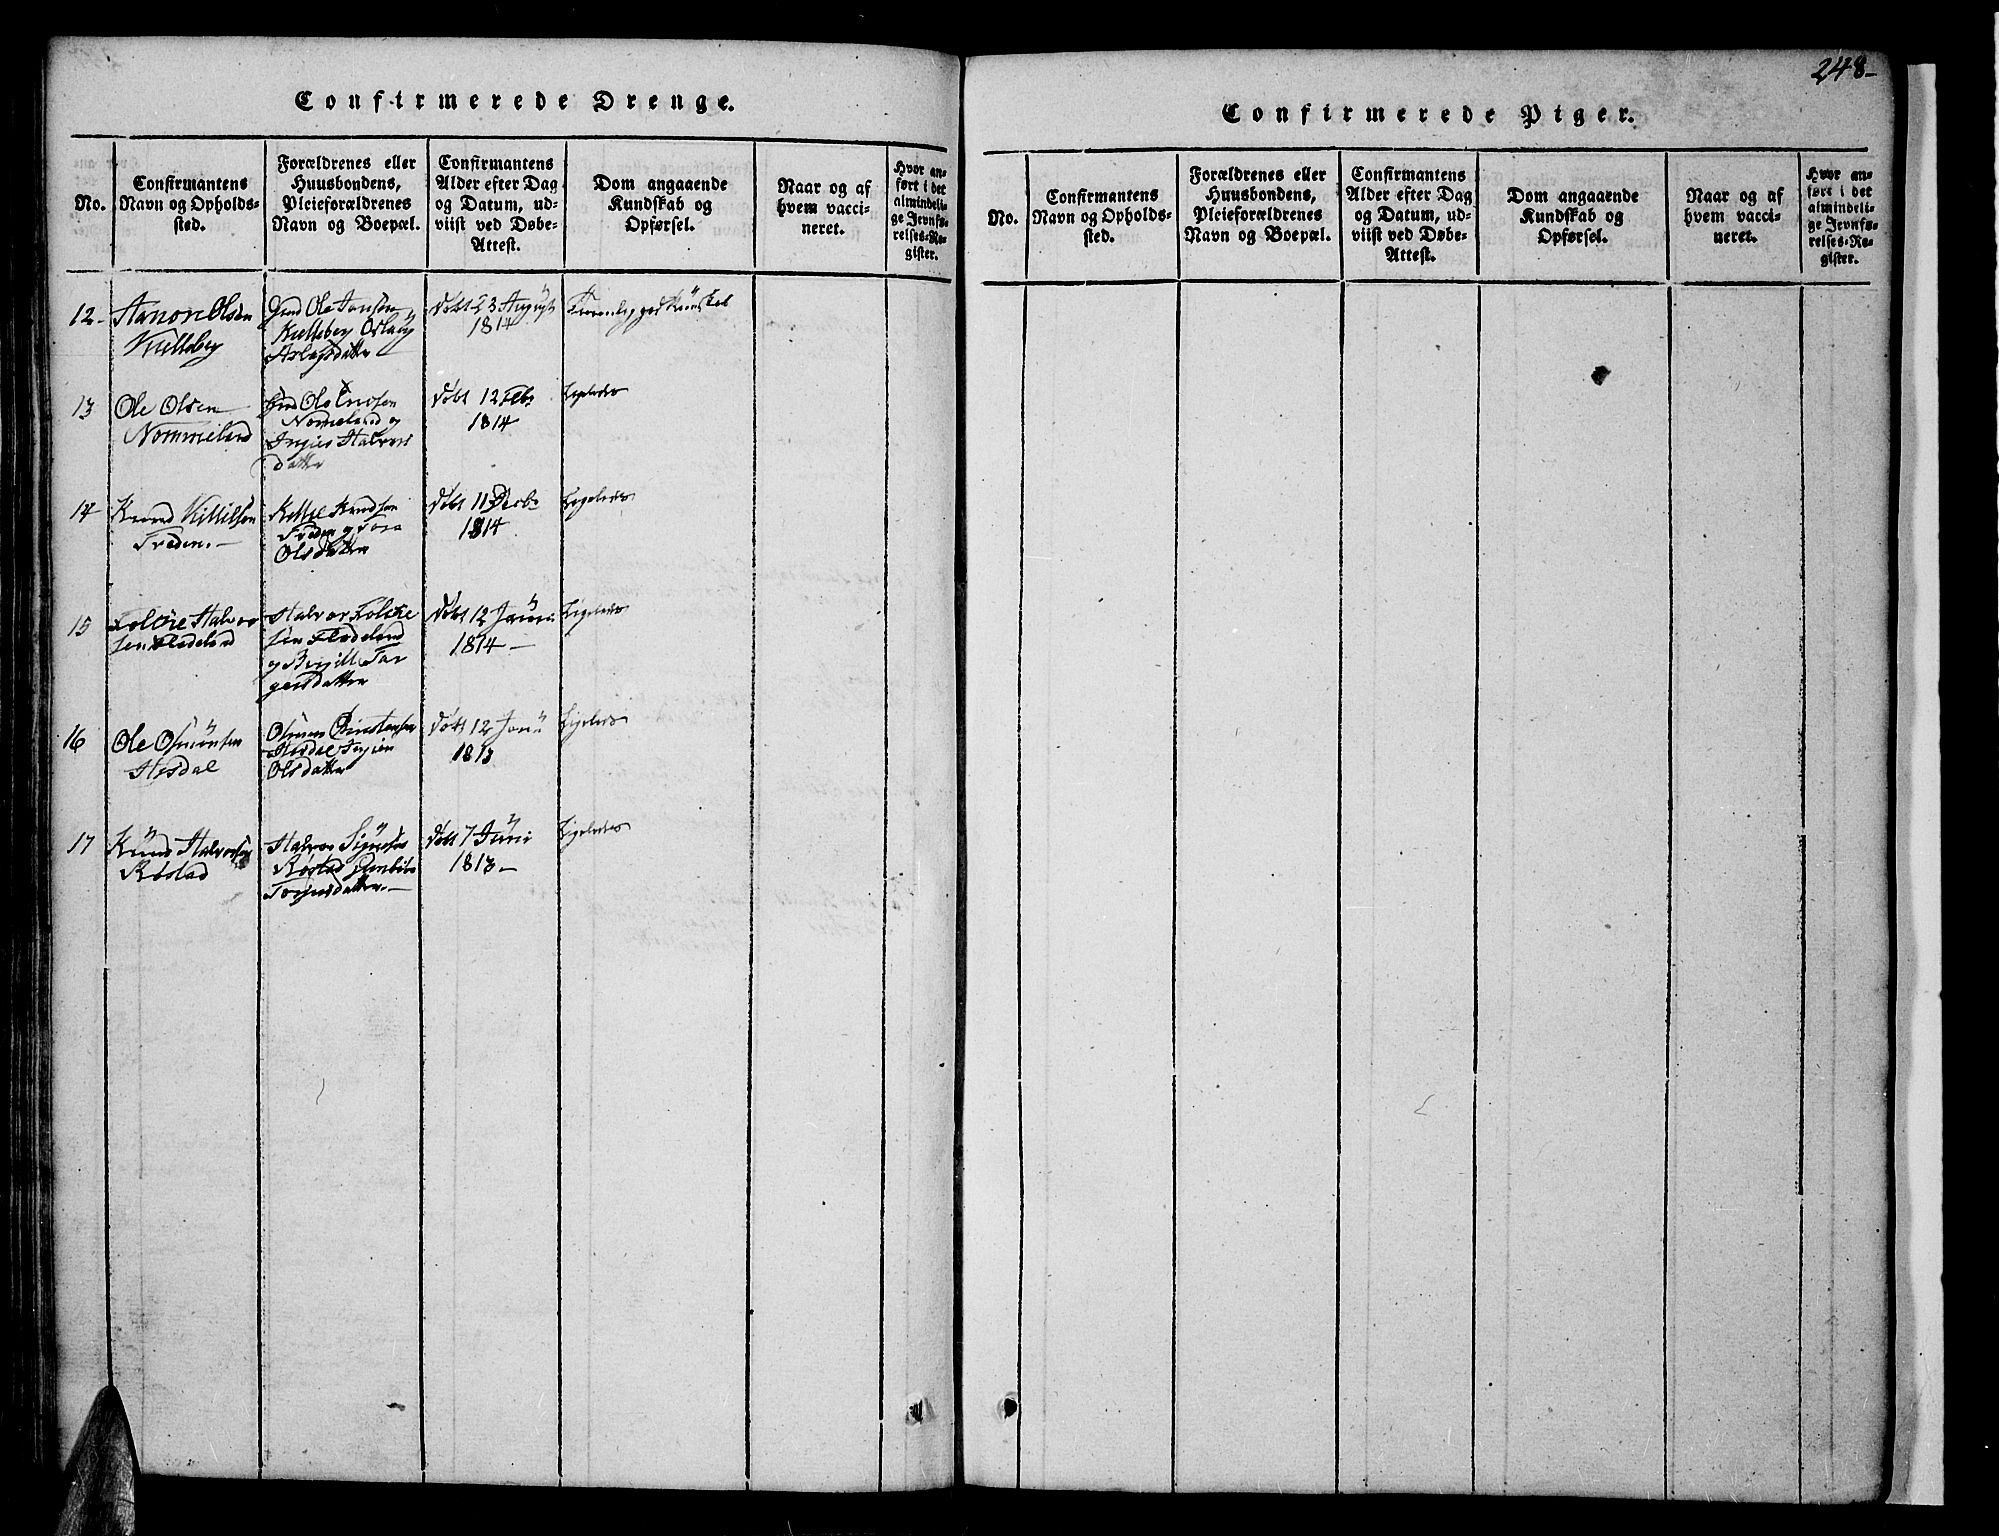 248-
Confirmerede Drenge.
No.
Confirmantens
Navn og Opholds-
sted.
Forældrenes eller
Huusbondens,
Pleieforældrenes
Navn og Boepæl.
Confirmantens
Alder efter Dag
og Datum, ud-
viist ved Døbe-
Attest.
Dom angaaende
Kundskab og
Opførsel.
Naar og af
hvem vacci-
neret.
Hvor an-
ført i det
almindeli-
ge Jevnfø-
relses-Re-
gister.
12-
Aanon Olsen
Kulleberg
Gmd Ole Jonsen
Kulleberg Oslaüg
Aslagsdatter
døbt 23 August
1814
Temmelig god Kundskab
13
Ole Olsen
Nommeland
Gmd Ole
Nomeland og
Halvors
datter
døbt 12 Feb:
1814
Ligeledes
14
Knud Killilsen
Treden.-
Knudsen
Treden og Tore
Olsdatter
døbt 11
1814
Ligeledes
15
Folche Halvor
sen Fladeland
Halvor Folche
sen Fladeland
og Tar
geisdatter
døbt 12
1814-
Ligeledes
16
Ole Osmünsen
Hesdal
Hesdal
Olsdatter
døbt 12
1813
Ligeledes
17
Knüd Halvorsen
Røstad
Halvor
Røstad
døbt 7 Jüni
1813-
Ligeledes
Confirmerede Piger.
No.
Confirmantens
Navn og Opholds-
sted.
Forældrenes eller
Huusbondens,
Pleieforældrenes
Navn og Boepæl.
Confirmantens
Alder efter Dag
og Datum, ud-
viist ved Døbe-
Attest.
Dom angaaende
Kundskab og
Opførsel.
Naar og af
hvem vacci-
neret.
Hvor an-
ført i det
almindeli-
ge Jevnfø-
relses-Re-
gister.